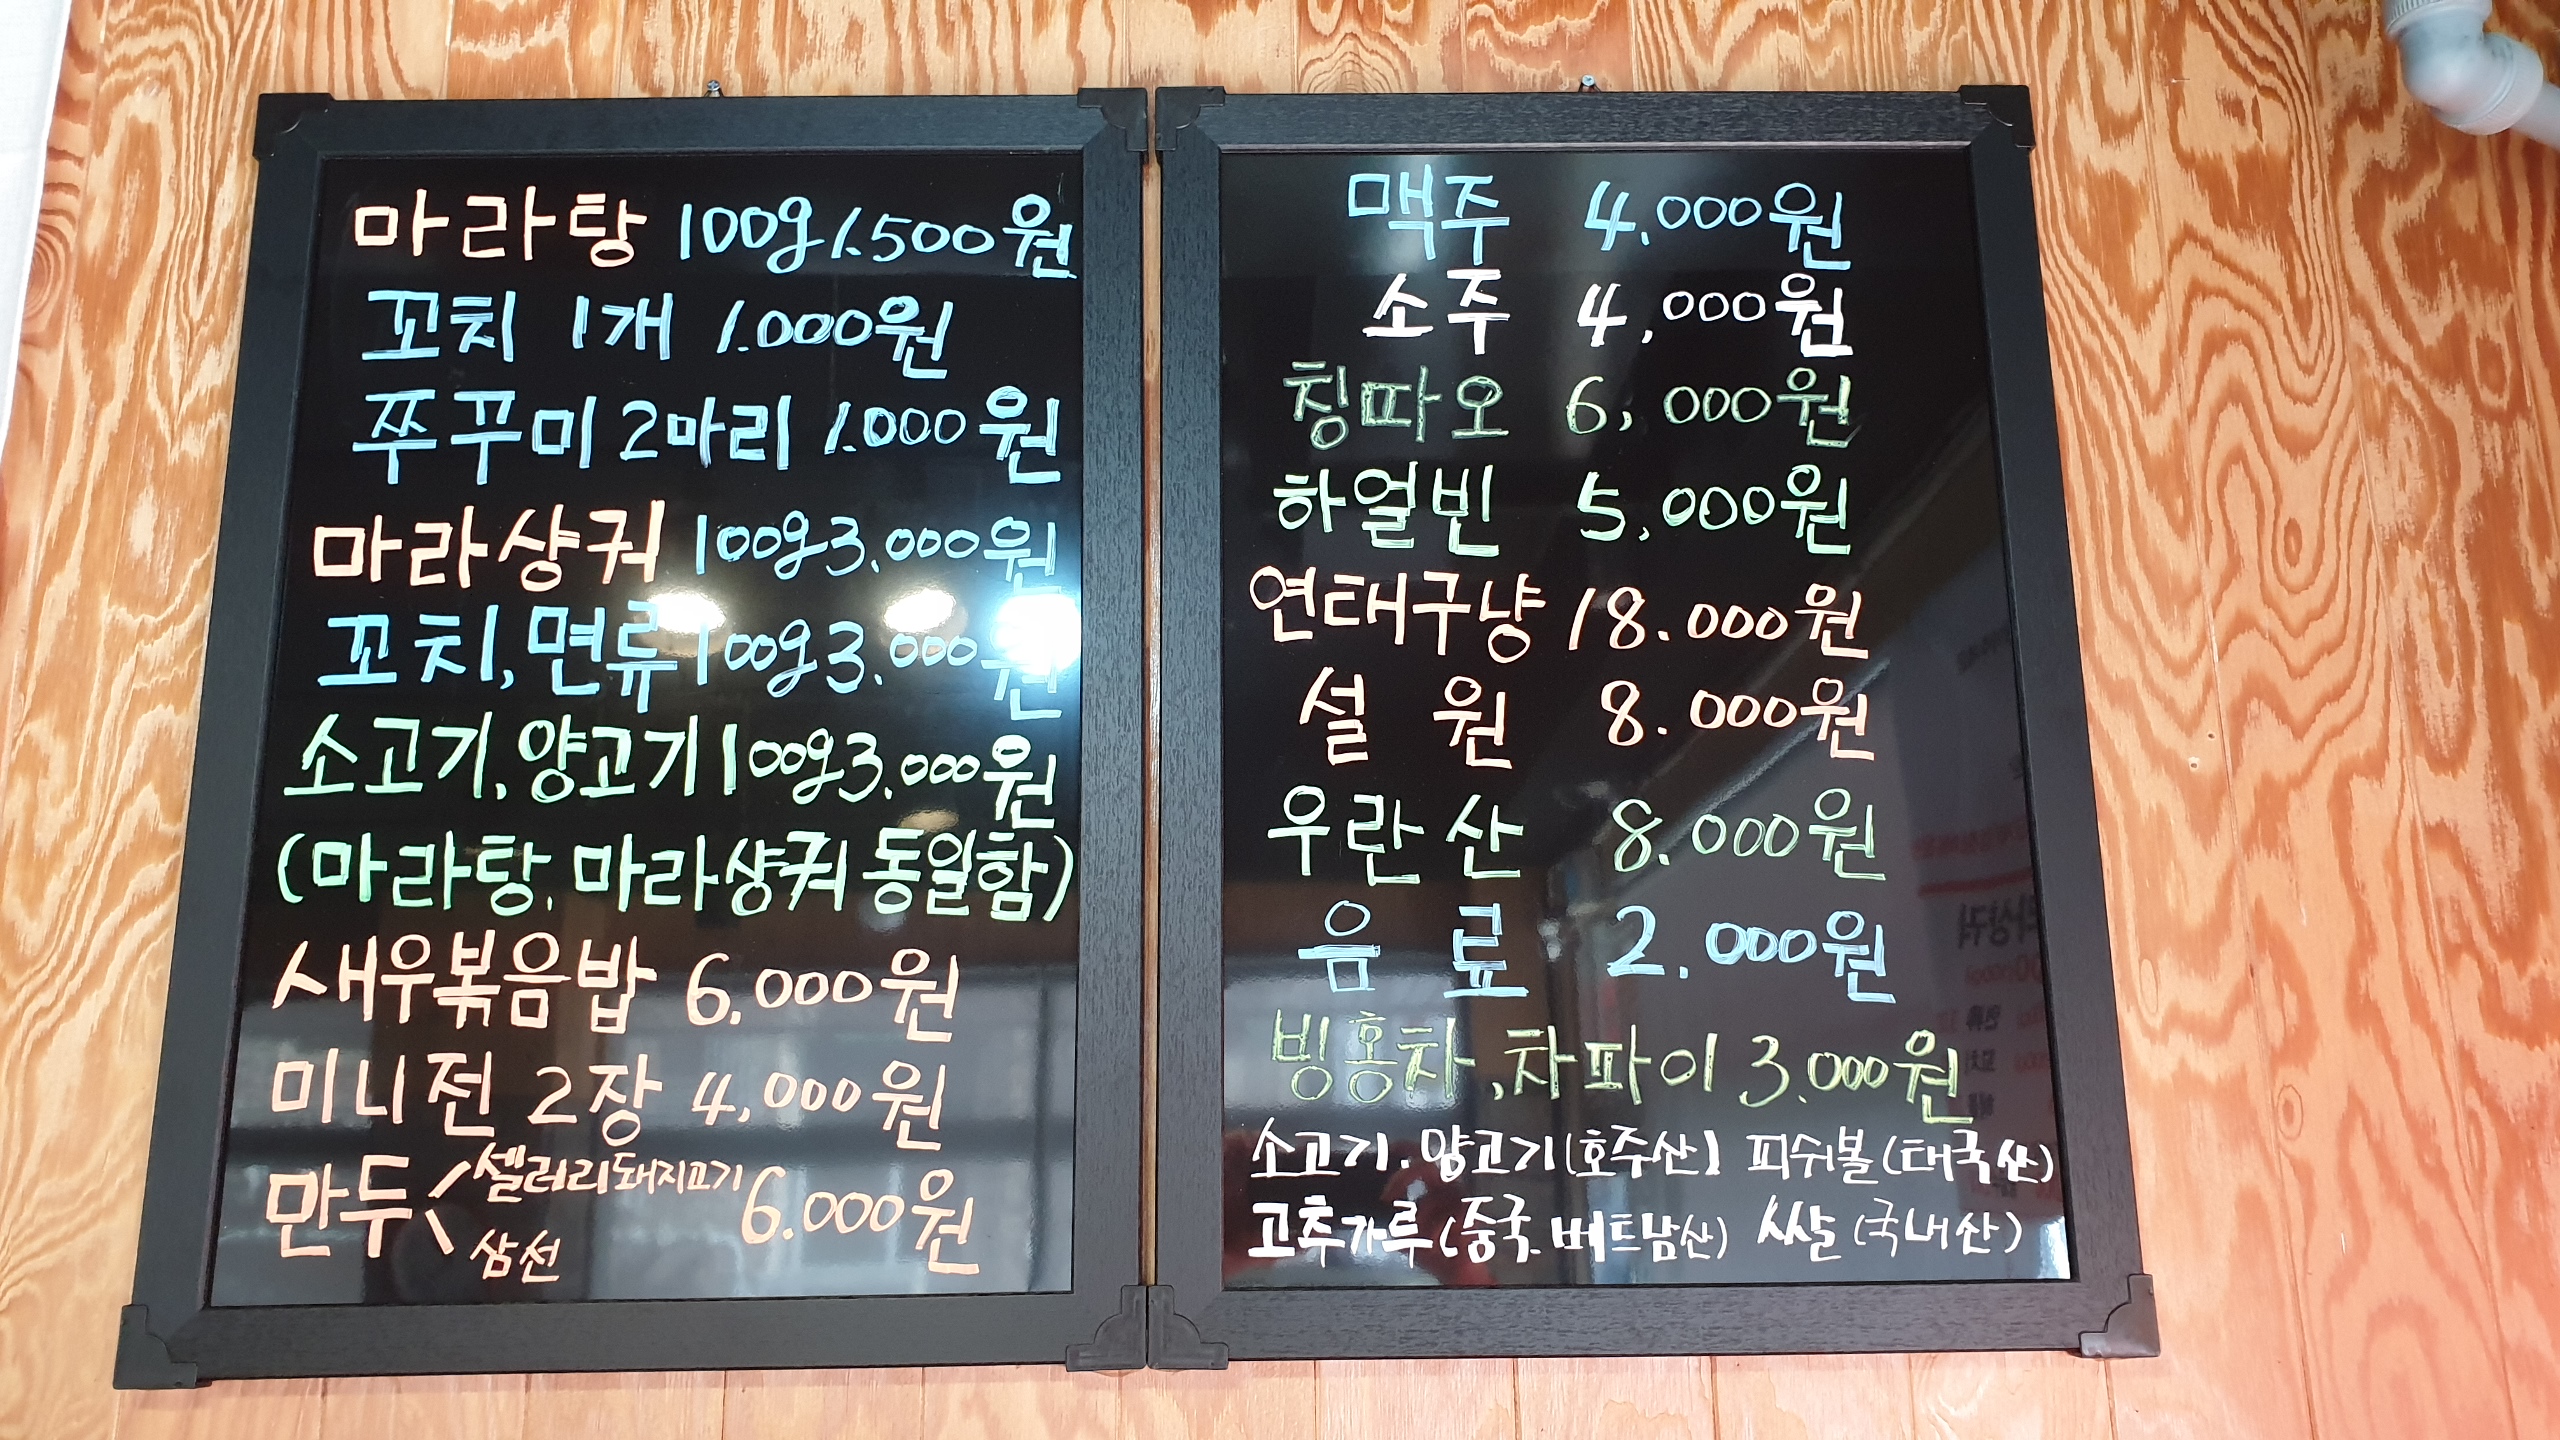 마라탕 100g 1.500원
꼬치 1개 1.000원
쭈꾸미 2마리 1.000원
마라샹궈 100g 3.000원
꼬치, 면류 100g 3.000원
소고기, 양고기 100g 3.000원
(마라탕, 마라샹궈 동일함)
새우볶음밥 6.000원
미니전 2장 4,000원
만두 셀러리돼지고기 6.000원
삼선
맥주 4.000원
소주 4,000원
칭따오 6,000원
하얼빈 5,000원
연태구냥 18.000원
설 원 8.000원
우란산 8.000원
음 료 2.000원
빙홍차, 차파이 3.000원
소고기. 양고기(호주산) 피쉬볼(태국산)
고추가루(중국. 베트남산) 쌀(국내산)